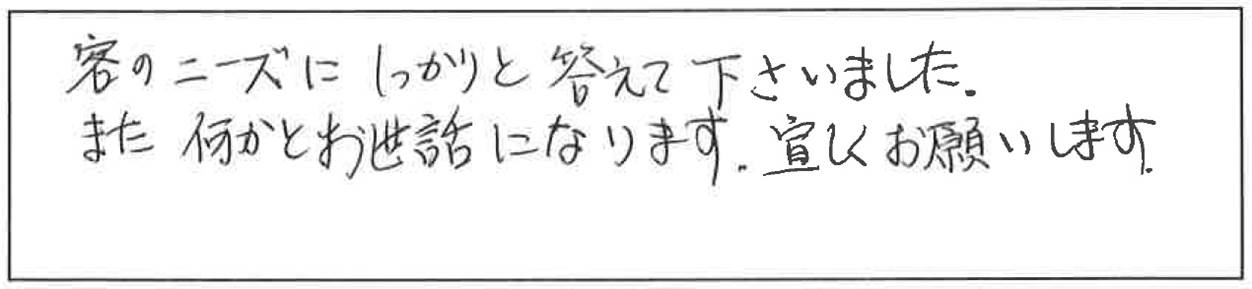 客のニーズにしっかりと答えて下さいました.
また何かとお世話になります.宜しくお願いします.